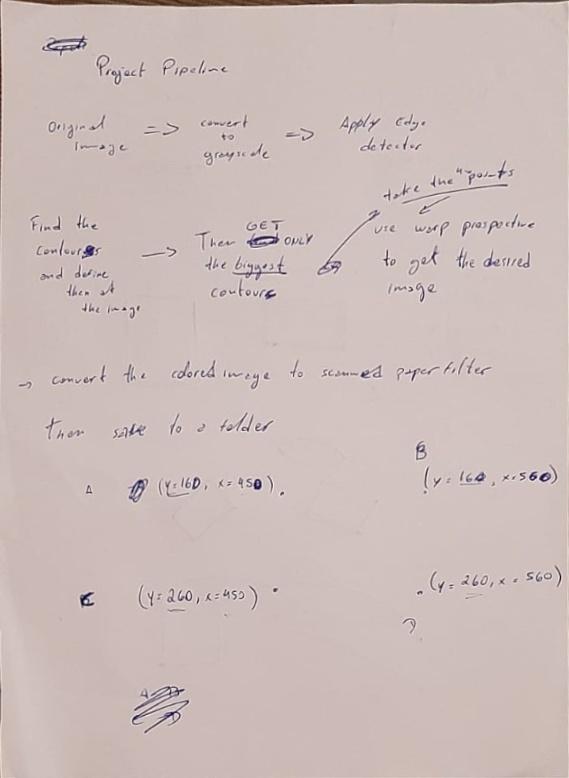 Project Pipeline
Original
image
=>
convert
to
grayscale
=>
Apply Edge
detector
Find the
contours
and define
them at
the image
→
GET
Then ONLY
the biggest
contours
take the 4 points
use warp prospective
to get the desired
image
→ convert the colored image to scanned paper filter
Then save to a folder
A (y=160, x=450).
B
(y=160, x=560)
C (y=260, x=450) .
. (y=260, x=560)